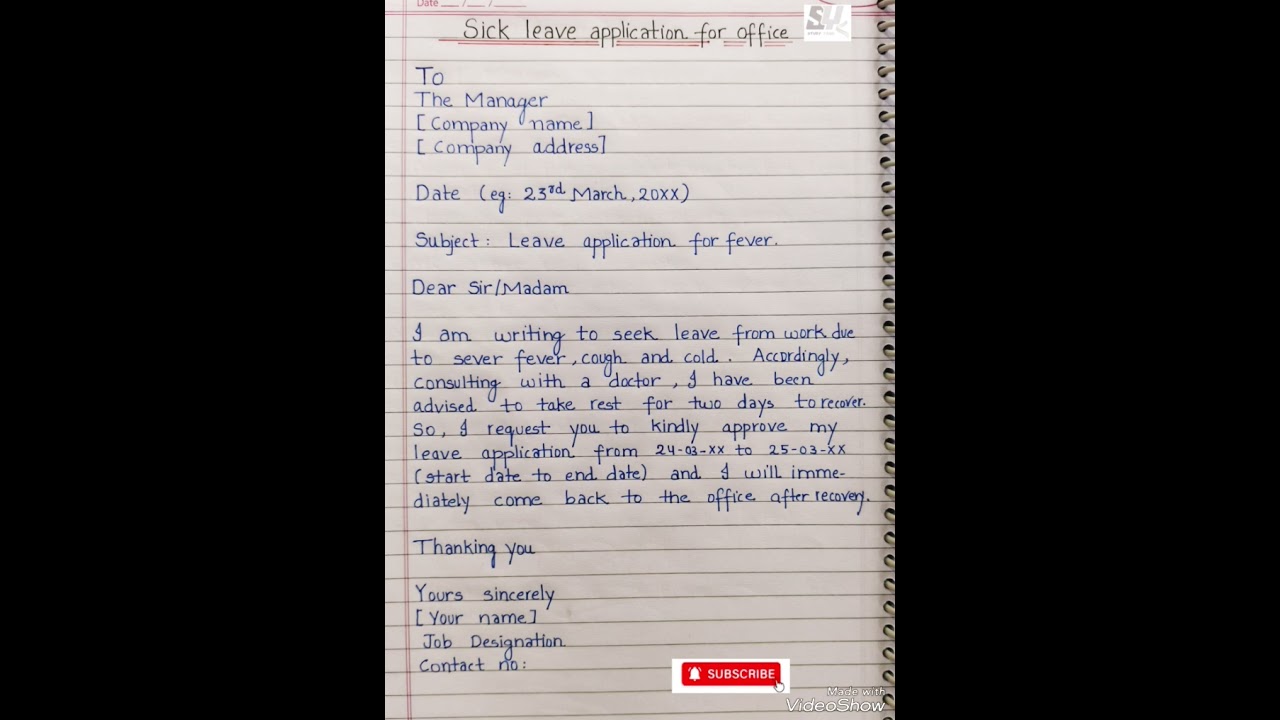 Date __/__/____
Sick leave application for office
To
The Manager
[Company name]
[Company address]
Date (eg: 23rd March, 20XX)
Subject: Leave application for fever.
Dear Sir/Madam
I am writing to seek leave from work due
to sever fever, cough and cold. Accordingly,
consulting with a doctor, I have been
advised to take rest for two days to recover.
So, I request you to kindly approve my
leave application from 24-03-XX to 25-03-XX
(start date to end date) and I will imme-
diately come back to the office after recovery.
Thanking you
Yours sincerely
[Your name]
Job Designation
Contact no:
SUBSCRIBE
Made with
VideoShow